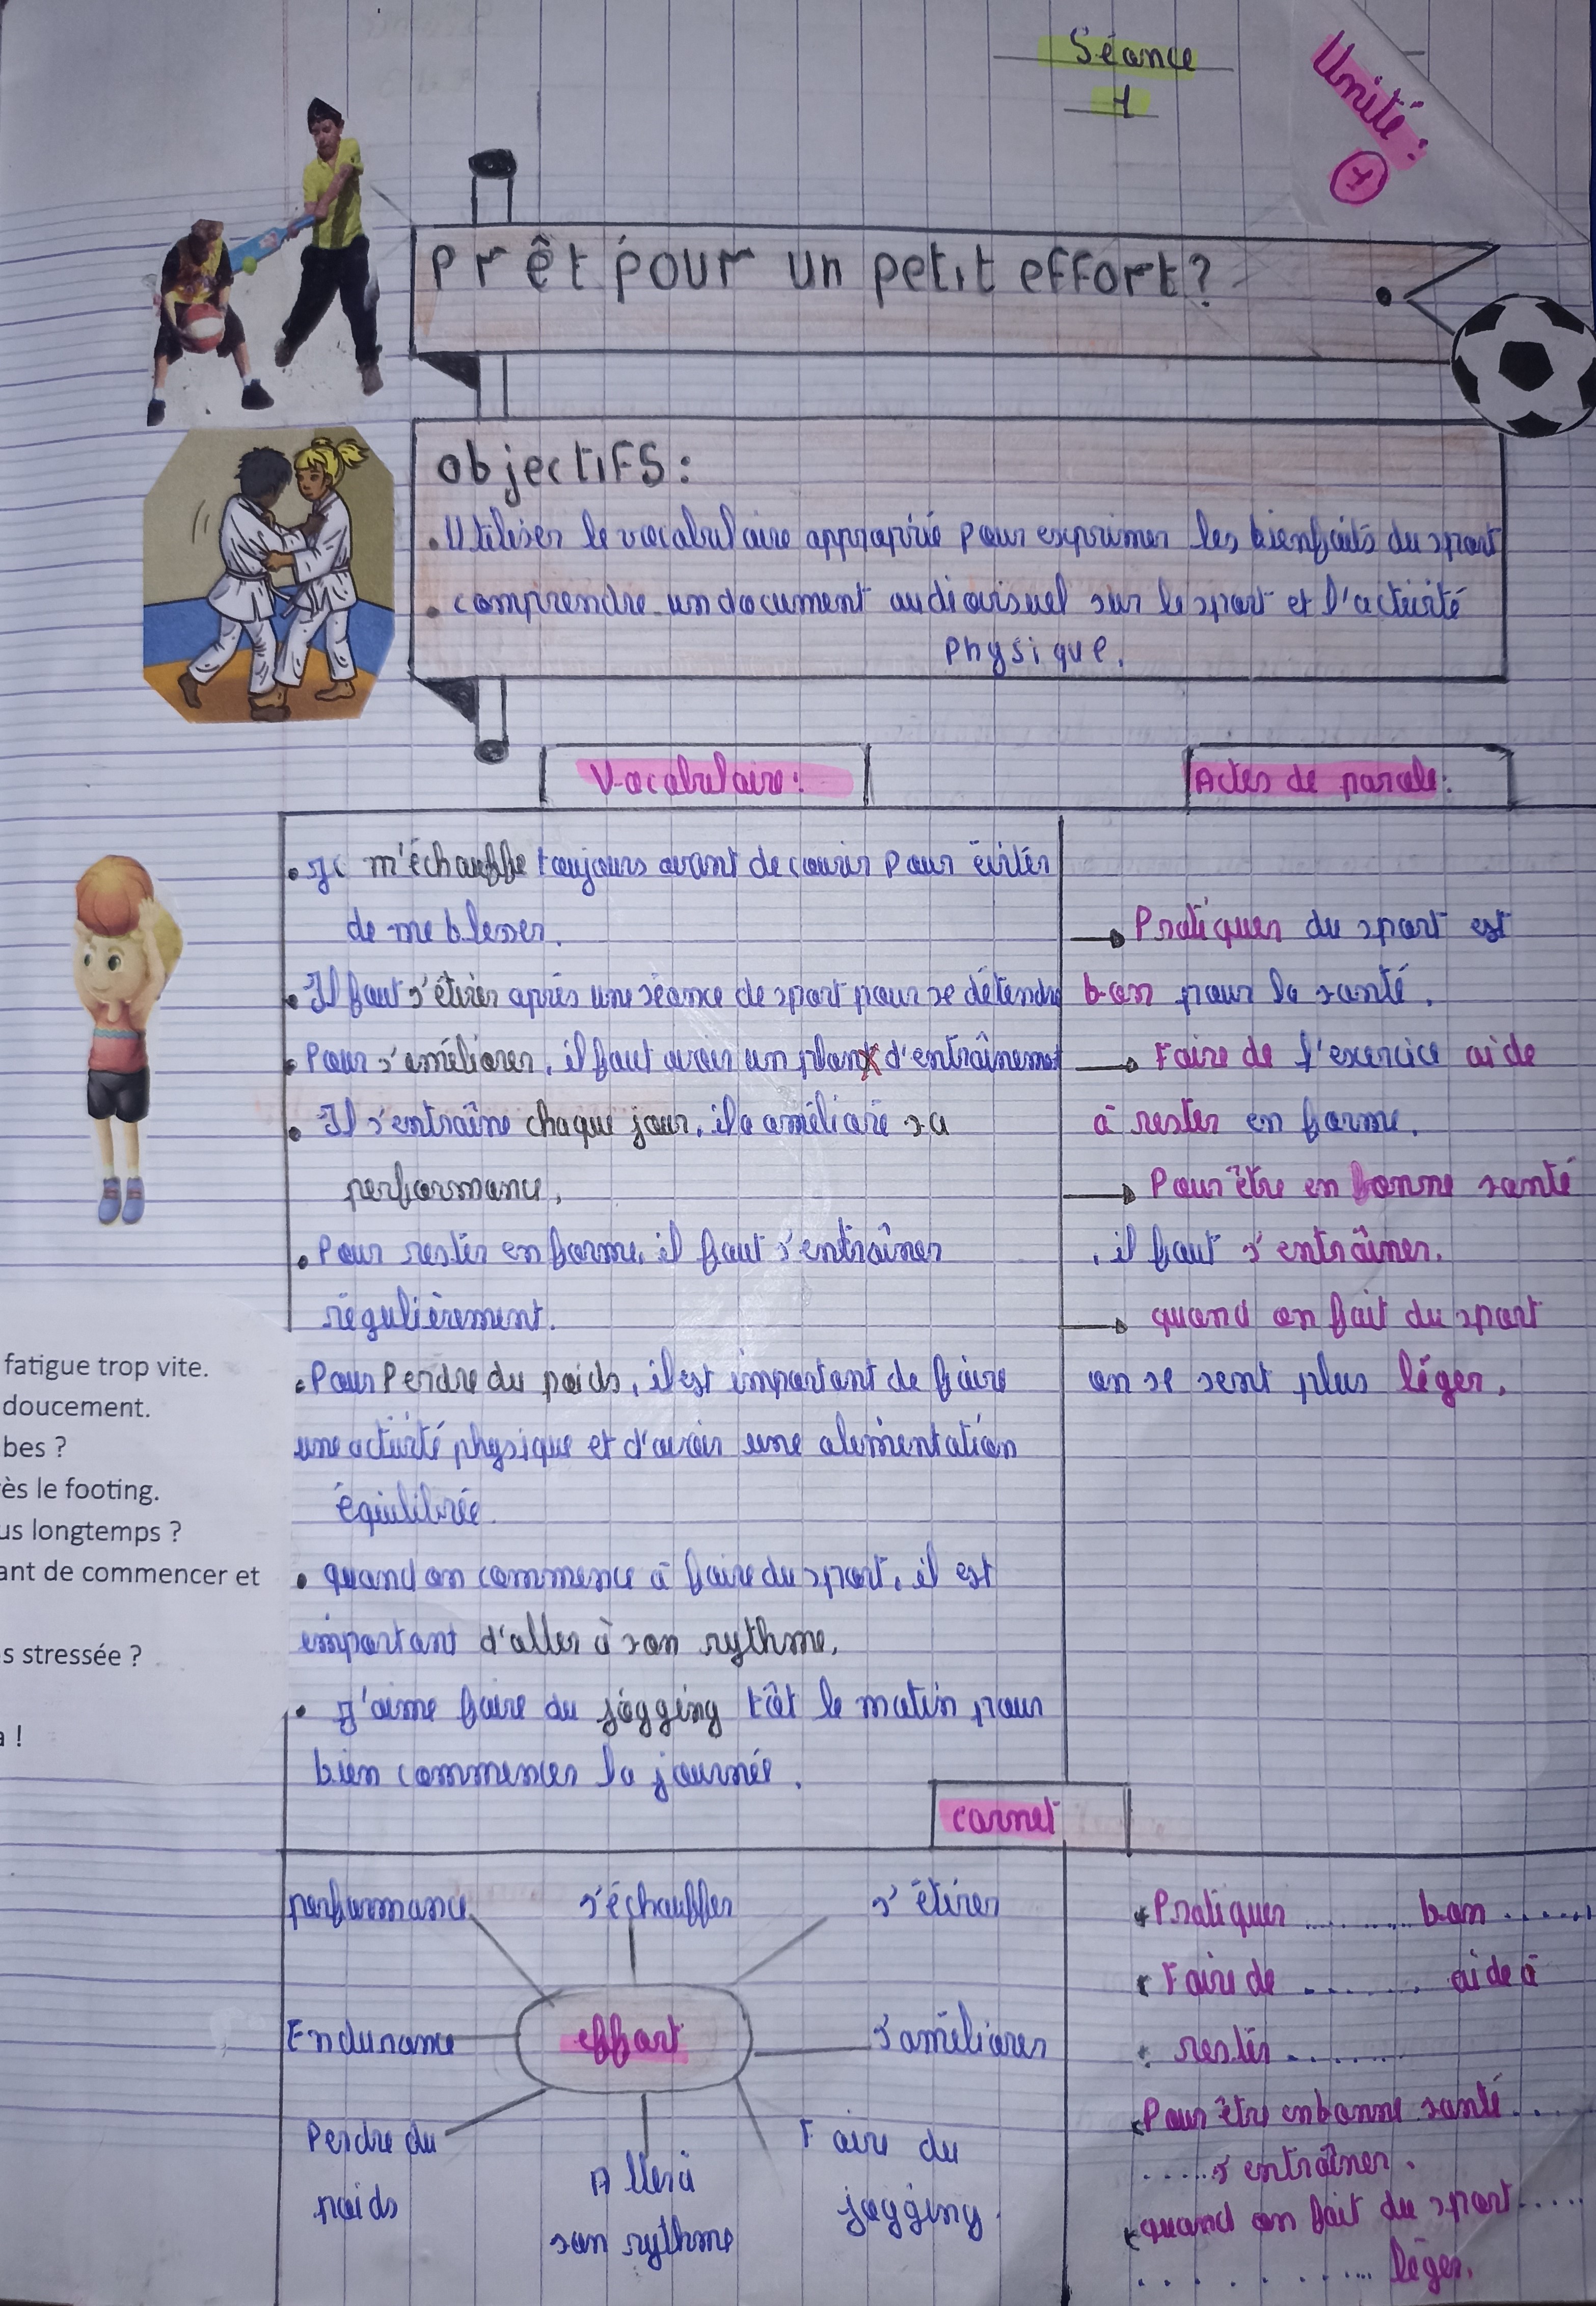 Séance
1
Unité :
1
Prêt pour un petit effort ?
Objectifs :
. Utiliser le vocabulaire approprié pour exprimer les bienfaits du sport
. comprendre un document audiovisuel sur le sport et l'activité
physique.
Vocabulaire :
• Je m'échauffe toujours avant de courir pour éviter
de me blesser.
• Il faut s'étirer après une séance de sport pour se détendre
• Pour s'améliorer, il faut avoir un plan d'entraînement
• Il s'entraîne chaque jour, il a amélioré sa
performance.
• Pour rester en forme, il faut s'entraîner
régulièrement.
• Pour Perdre du poids, il est important de faire
une activité physique et d'avoir une alimentation
équilibrée.
• quand on commence à faire du sport, il est
important d'aller à son rythme.
• J'aime faire du jogging tôt le matin pour
bien commencer la journée.
Actes de parole :
→ Pratiquer du sport est
bon pour la santé.
→ Faire de l'exercice aide
à rester en forme.
→ Pour être en bonne santé
, il faut s'entraîner.
→ quand on fait du sport
on se sent plus léger.
fatigue trop vite.
doucement.
bes ?
ès le footing.
us longtemps ?
ant de commencer et
s stressée ?
a !
carnet
performance s'échauffer s'étirer
Endurance effort s'améliorer
Perdre du
poids
Aller à
son rythme
Faire du
jogging.
* Pratiquer .......... bon ......
* Faire de ........ aide à
* rester ........
* Pour être en bonne santé ....
...... s'entraîner.
* quand on fait du sport .....
........... léger.